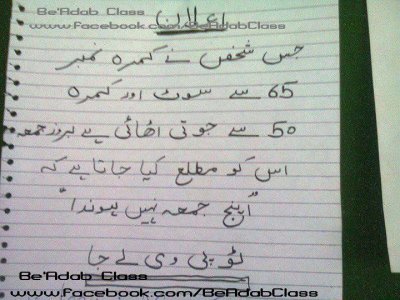 Be'Adab Class
www.facebook.com/BeAdabClass
اعلان
جس شخص نے کمرہ نمبر
65 سے سوٹ اور کمرہ
50 سے جوتی اٹھائی ہے بروز جمعہ
اس کو مطلع کیا جاتا ہے کہ
"اینج جمعہ نہیں ہوندا"
ٹوپی وی لے جا
Be'Adab Class
www.facebook.com/BeAdabClass